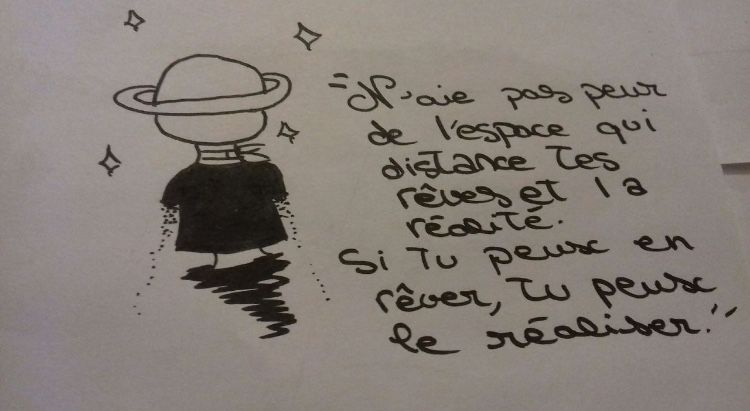 "N'aie pas peur
de l'espace qui
distance tes
rêves et la
réalité.
Si tu peux en
rêver, tu peux
le réaliser."